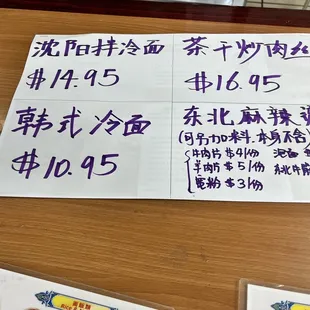 沈阳拌冷面
$14.95
茶干炒肉丝
$16.95
韩式冷面
$10.95
东北麻辣
(可另加料,本身不含)
牛肉片 $4/份 泡面
羊肉片 $5/份 东北牛
宽粉 $3/份